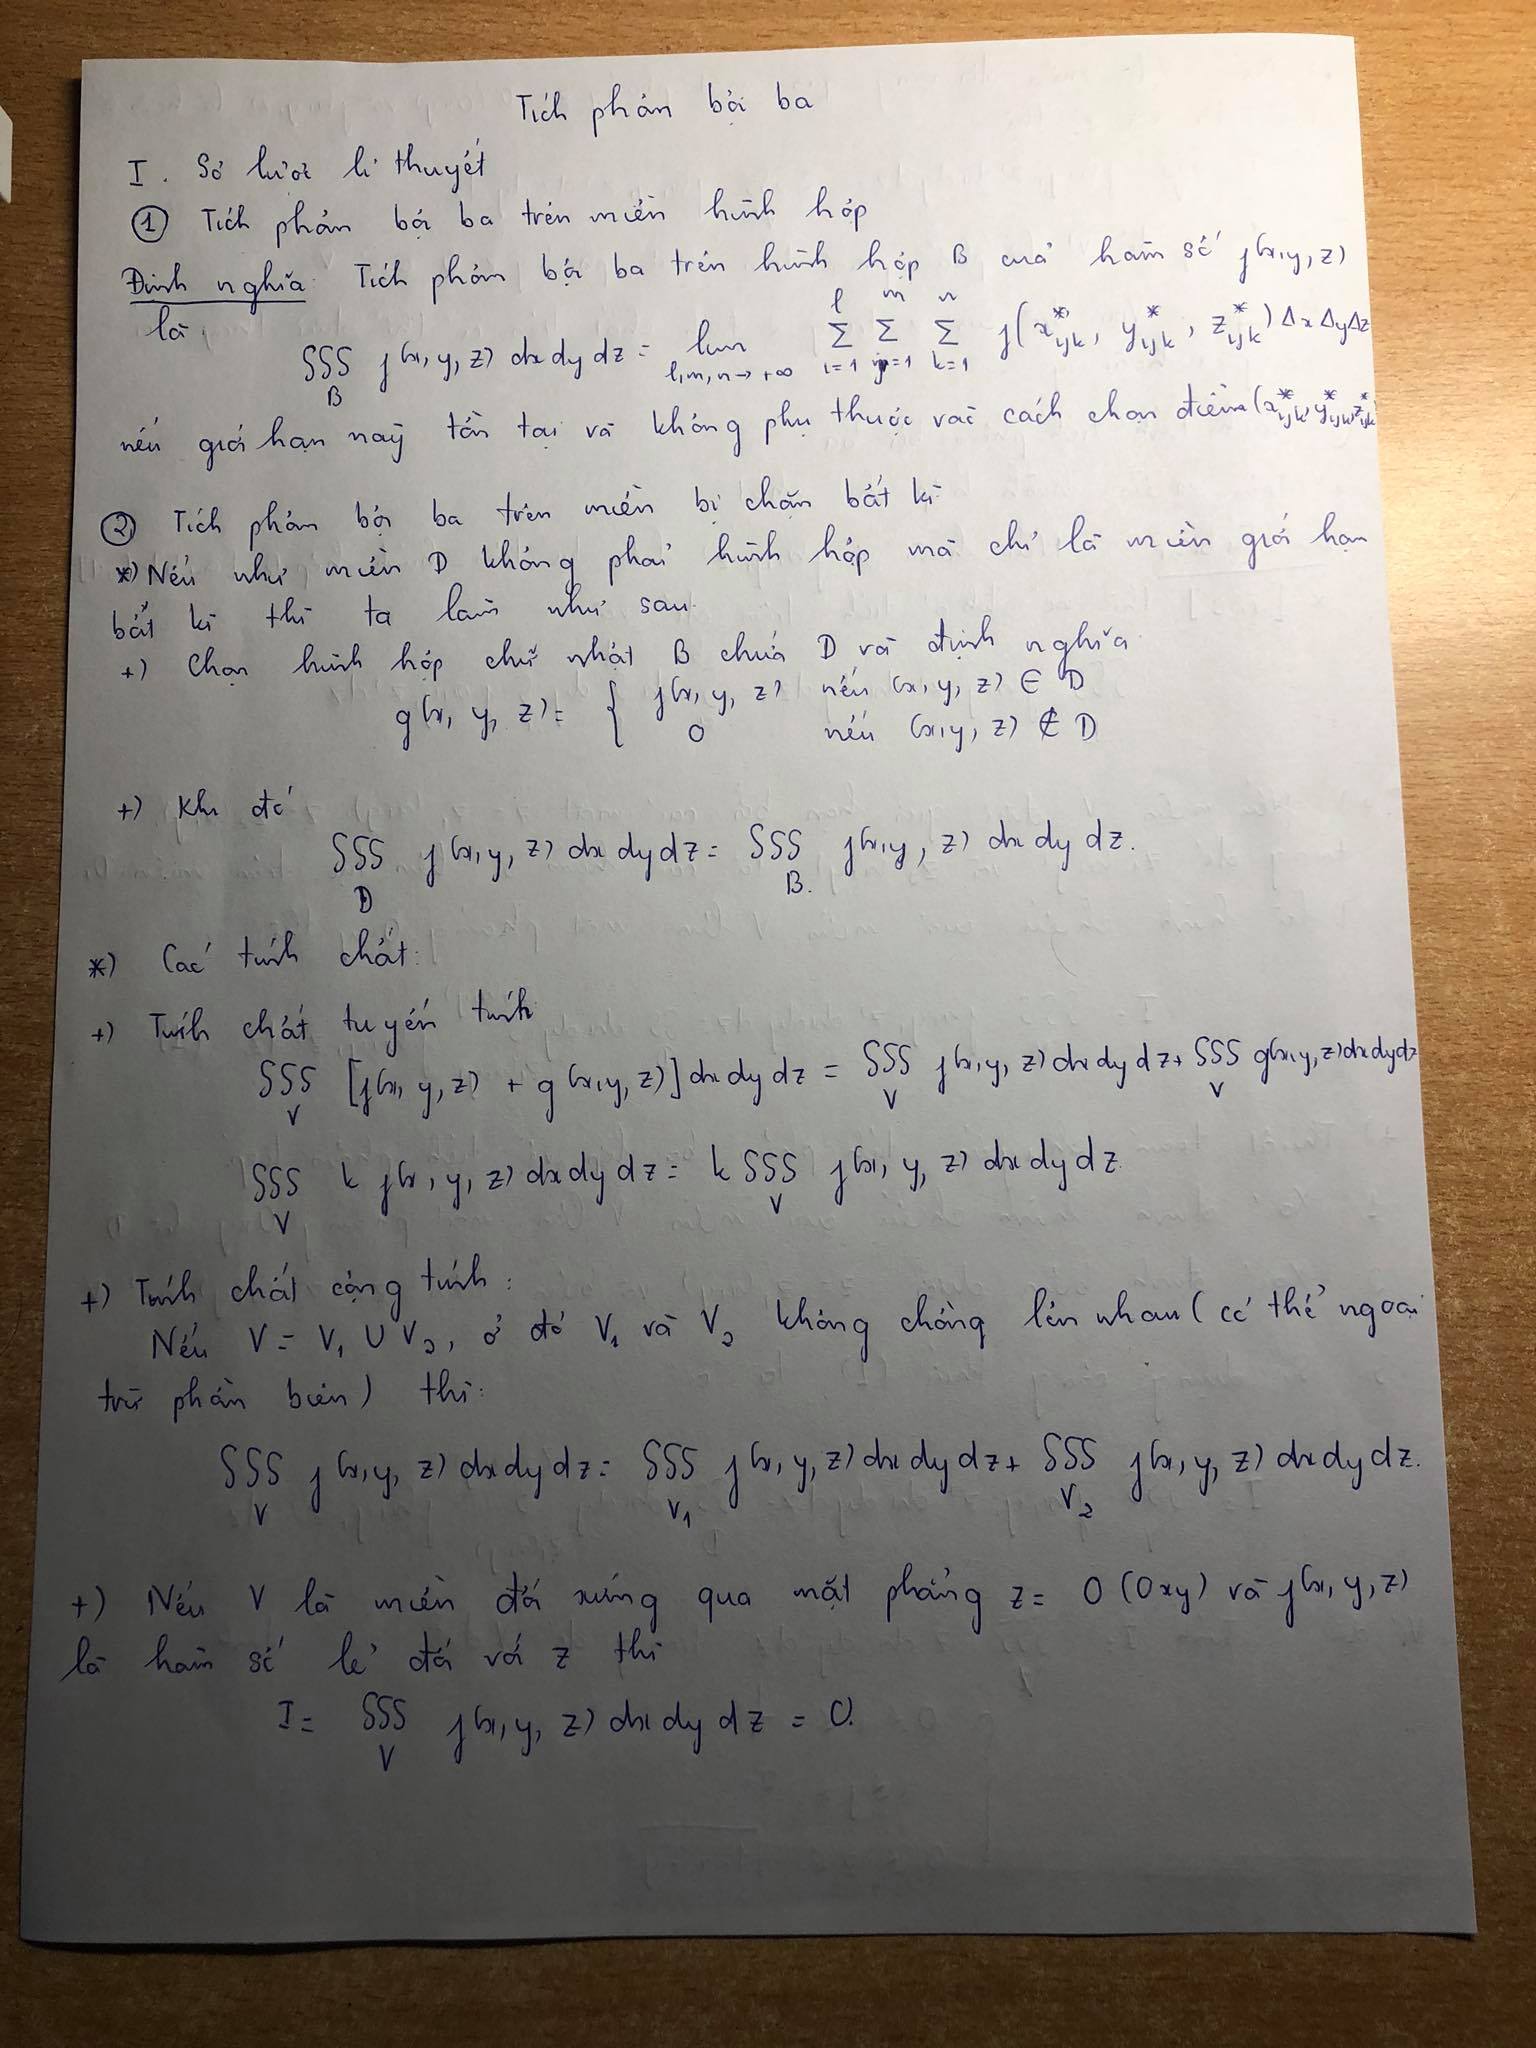 Tích phân bội ba
I. Sơ lược lí thuyết
① Tích phân bội ba trên miền hình hộp
Định nghĩa: Tích phân bội ba trên hình hộp B của hàm số f(x,y,z)
là ∭_B f(x,y,z) dxdydz = lim_{l,m,n→+∞} Σ_{i=1}^{l} Σ_{j=1}^{m} Σ_{k=1}^{n} f(x*_{ijk}, y*_{ijk}, z*_{ijk}) Δx Δy Δz
nếu giới hạn này tồn tại và không phụ thuộc vào cách chọn điểm (x*_{ijk}, y*_{ijk}, z*_{ijk})
② Tích phân bội ba trên miền bị chặn bất kì
*) Nếu như miền D không phải hình hộp mà chỉ là miền giới hạn
bất kì thì ta làm như sau:
+) Chọn hình hộp chữ nhật B chứa D và định nghĩa
g(x, y, z) = { f(x, y, z) nếu (x, y, z) ∈ D
0 nếu (x, y, z) ∉ D
+) Khi đó
∭_D f(x,y,z) dxdydz = ∭_B f(x,y,z) dxdydz.
*) Các tính chất:
+) Tính chất tuyến tính
∭_V [f(x, y, z) + g(x,y,z)] dxdydz = ∭_V f(x,y,z) dxdydz + ∭_V g(x,y,z) dxdydz
∭_V k f(x, y, z) dxdydz = k ∭_V f(x, y, z) dxdydz
+) Tính chất cộng tính:
Nếu V = V₁ ∪ V₂, ở đó V₁ và V₂ không chồng lên nhau (có thể ngoại
trừ phần biên) thì:
∭_V f(x,y,z) dxdydz = ∭_{V₁} f(x, y, z) dxdydz + ∭_{V₂} f(x, y, z) dxdydz.
+) Nếu V là miền đối xứng qua mặt phẳng z = 0 (Oxy) và f(x, y, z)
là hàm số lẻ đối với z thì
I = ∭_V f(x, y, z) dxdydz = 0.